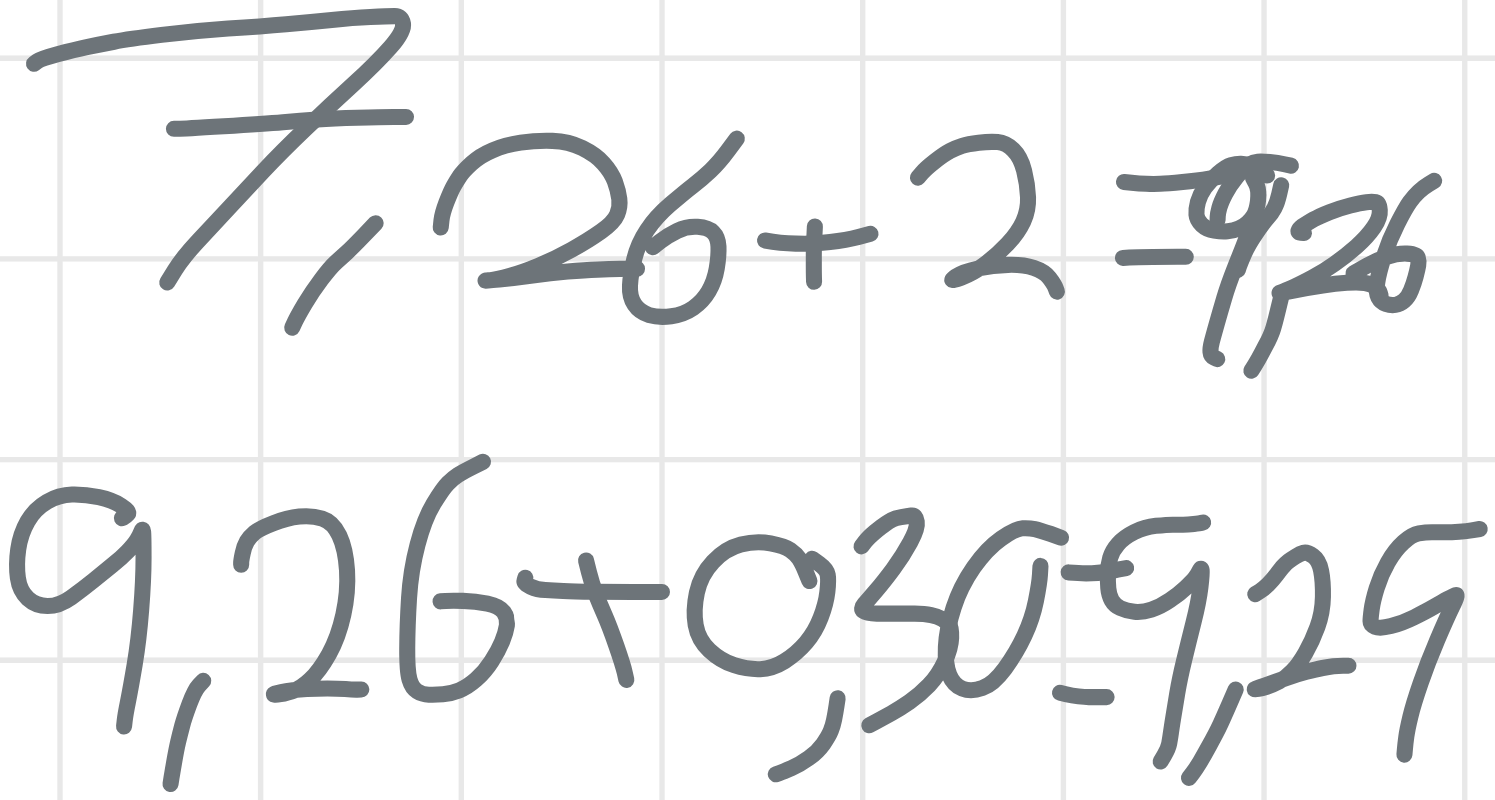 7,26+2=9,26
9,26+0,30=9,29